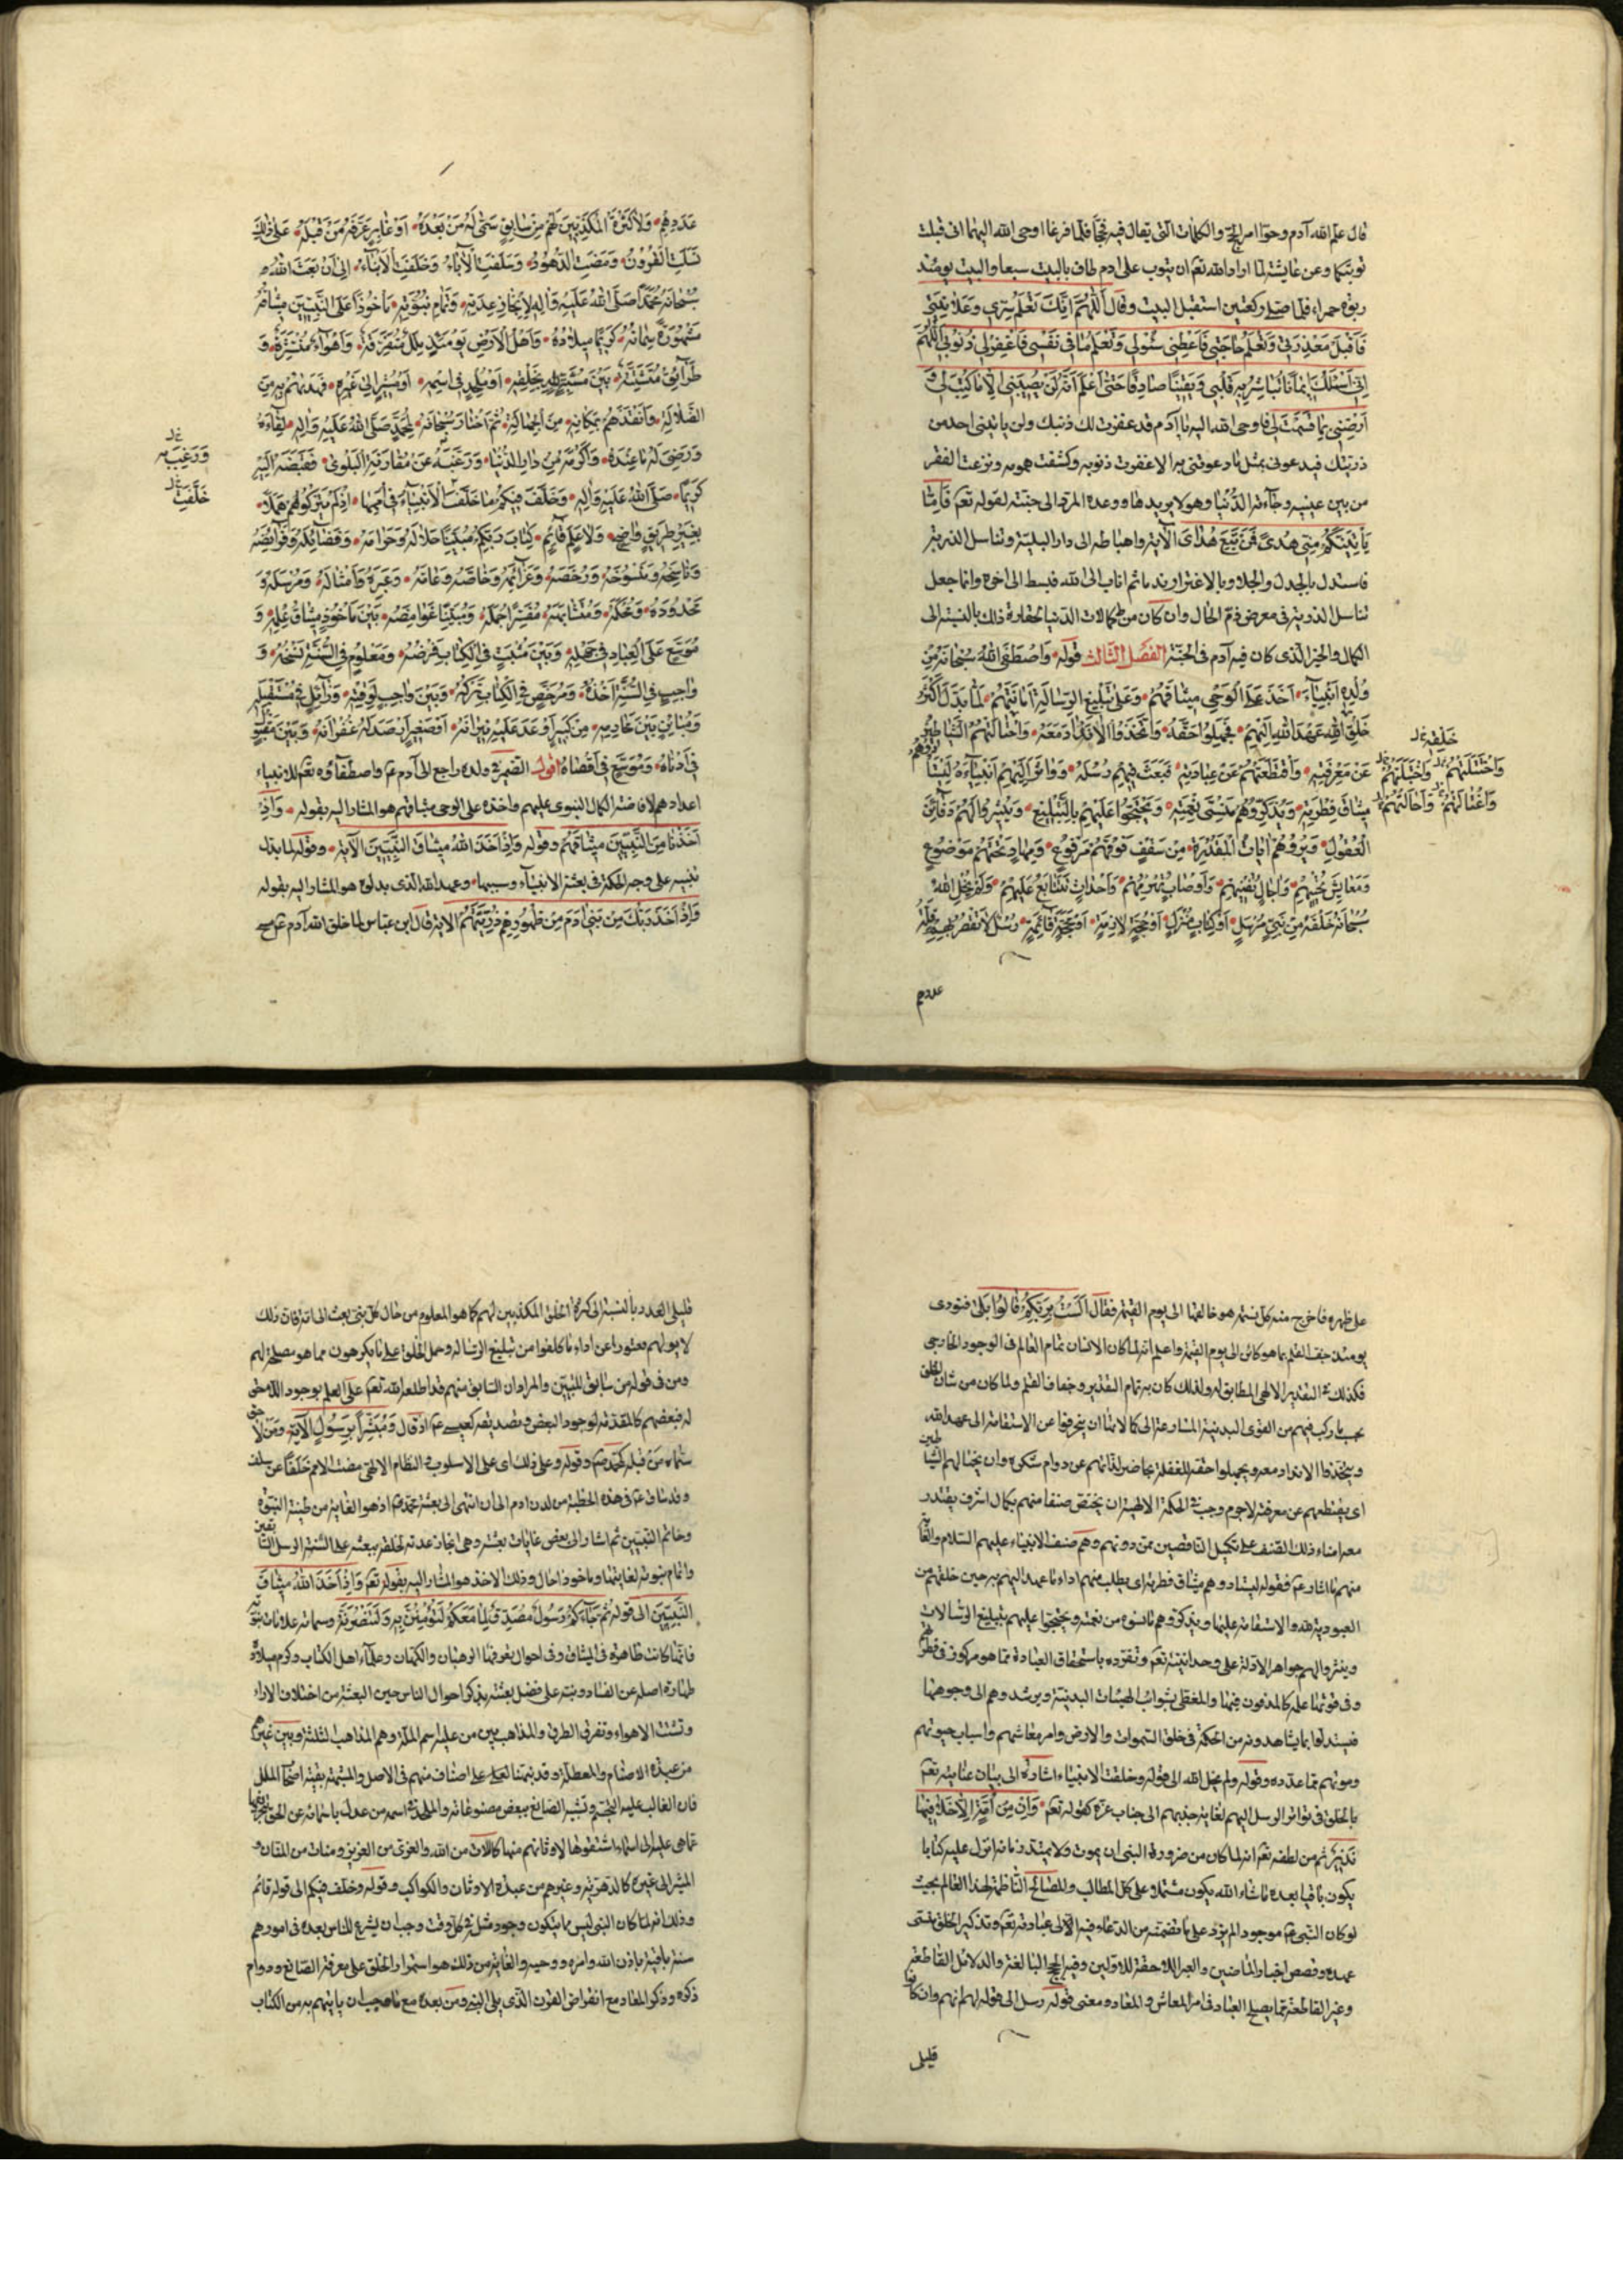 قال علم الله آدم وحوا امر الحج والكلمات التى يقال فيه فحجا فلما فرغا اوحى الله اليهما انى قبلت
توبتكما وعن عايشة لما اراد الله تعم ان يتوب على ادم طاف بالبيت سبعا والبيت يومئذ
ربوة حمراء فلما صلى ركعتين استقبل البيت وقال اَللّهُمَّ اِنَّكَ تَعْلَمُ سِرّى وَعَلانِيَتى
فَاقْبَلْ مَعْذِرَتى وَتَعْلَمُ حاجَتى فَاَعْطِنى سُؤلى وَتَعْلَمُ ما فى نَفْسى فَاغْفِرْلى ذُنُوبى اَللّهُمَّ
اِنّى اَسْئَلُكَ ايماناً تُباشِرُ بِهِ قَلْبى وَيَقيناً صادِقاً حَتّى اَعْلَمَ اَنَّهُ لَنْ يُصيبَنى اِلّا ما كَتَبْتَ لى وَ
اَرْضِنى بِما قَسَمْتَ لى فاوحى الله اليه يا آدم قد غفرت لك ذنبك ولن ياتينى احد من
ذريتك فيدعونى بمثل ما دعوتنى به الا غفرت ذنوبه وكشفت همومه ونزعت الفقر
من بين عينيه وجآءته الدنيا وهو لا يريدها ووعده المرد الى جنته لقوله تعم فَاِمّا
يَاْتِيَنَّكُمْ مِنّى هُدىً فَمَنْ تَبِعَ هُداىَ الآية واهباطه الى دار البلية وتناسل الذرية
فاستدل بالجدل والجلاو بالاغترار وندما ثم اناب الى الله فبسط الى اخره وانما جعل
تناسل الذرية فى معرض ذم الحال وان كان من كمالات الدنيا لحقارة ذلك بالنسبة الى
الكمال والخير الذى كان فيه آدم فى الجنة الفصل الثالث قوله وَاصْطَفَى اللهُ سُبْحانَهُ مِنْ
وُلْدِهِ اَنْبِيآءَ اَخَذَ عَلَى الْوَحْىِ ميثاقَهُمْ وَعَلى تَبْليغِ الرِّسالَةِ اَمانَتَهُمْ لَمّا بَدَّلَ اَكْثَرُ
خَلْقِ اللهِ عَهْدَ اللهِ اِلَيْهِمْ فَجَهِلُوا حَقَّهُ وَاتَّخَذُوا الْاَنْدادَ مَعَهُ وَاحْتالَتْهُمُ الشَّياطينُ
عَنْ مَعْرِفَتِهِ وَاقْتَطَعَتْهُمْ عَنْ عِبادَتِهِ فَبَعَثَ فيهِمْ رُسُلَهُ وَواتَرَ اِلَيْهِمْ اَنْبِيآءَهُ لِيَسْتَأدُوهُمْ
ميثاقَ فِطْرَتِهِ وَيُذَكِّرُوهُمْ مَنْسِىَّ نِعْمَتِهِ وَيَحْتَجُّوا عَلَيْهِمْ بِالتَّبْليغِ وَيُثيرُوا لَهُمْ دَفآئِنَ
الْعُقُولِ وَيُرُوهُمْ اياتِ الْمَقْدِرَةِ مِنْ سَقْفٍ فَوْقَهُمْ مَرْفُوعٍ وَمِهادٍ تَحْتَهُمْ مَوْضُوعٍ
وَمَعايِشَ تُحْييهِمْ وَاجالٍ تُفْنيهِمْ وَاَوْصابٍ تُهْرِمُهُمْ وَاَحْداثٍ تَتابَعُ عَلَيْهِمْ وَلَمْ يُخْلِ اللهُ
سُبْحانَهُ خَلْقَهُ مِنْ نَبِىٍّ مُرْسَلٍ اَوْ كِتابٍ مُنْزَلٍ اَوْ حُجَّةٍ لازِمَةٍ اَوْ مَحَجَّةٍ قآئِمَةٍ رُسُلٌ لا تُقَصِّرُ بِهِمْ قِلَّةُ
خَلِيقَتِهِ
وَاجْتَبَلَتْهُمْ وَاجْتالَتْهُمْ
عددهم
عَدَدِهِمْ وَلا كَثْرَةُ الْمُكَذِّبينَ لَهُمْ مِنْ سابِقٍ سُمِّىَ لَهُ مَنْ بَعْدَهُ اَوْ غابِرٍ عَرَّفَهُ مَنْ قَبْلَهُ عَلى ذلِكَ
نَسَلَتِ الْقُرُونُ وَمَضَتِ الدُّهُورُ وَسَلَفَتِ الْآبآءُ وَخَلَفَتِ الْاَبْنآءُ اِلى اَنْ بَعَثَ اللهُ
سُبْحانَهُ مُحَمَّداً صَلَّى اللهُ عَلَيْهِ وَآلِهِ لِاِنْجازِ عِدَتِهِ وَتَمامِ نُبُوَّتِهِ مَاْخُوذاً عَلَى النَّبِيّينَ ميثاقُهُ
مَشْهُورَةً سِماتُهُ كَريماً ميلادُهُ وَاَهْلُ الْاَرْضِ يَوْمَئِذٍ مِلَلٌ مُتَفَرِّقَةٌ وَاَهْوآءٌ مُنْتَشِرَةٌ وَ
طَرآئِقُ مُتَشَتِّتَةٌ بَيْنَ مُشَبِّهٍ لِلّهِ بِخَلْقِهِ اَوْ مُلْحِدٍ فى اسْمِهِ اَوْ مُشيرٍ اِلى غَيْرِهِ فَهَديهُمْ بِهِ مِنَ
الضَّلالَةِ وَاَنْقَذَهُمْ بِمَكانِهِ مِنَ الْجَهالَةِ ثُمَّ اخْتارَ سُبْحانَهُ لِمُحَمَّدٍ صَلَّى اللهُ عَلَيْهِ وَآلِهِ لِقآءَهُ
وَرَضِىَ لَهُ ما عِنْدَهُ وَاَكْرَمَهُ عَنْ دارِ الدُّنْيا وَرَغِبَ بِهِ عَنْ مُقارَنَةِ الْبَلْوى فَقَبَضَهُ اِلَيْهِ
كَريماً صَلَّى اللهُ عَلَيْهِ وَآلِهِ وَخَلَّفَ فيكُمْ ما خَلَّفَتِ الْاَنْبِيآءُ فى اُمَمِها اِذْ لَمْ يَتْرُكُوهُمْ هَمَلاً
بِغَيْرِ طَريقٍ واضِحٍ وَلا عَلَمٍ قآئِمٍ كِتابَ رَبِّكُمْ مُبَيِّناً حَلالَهُ وَحَرامَهُ وَفَضآئِلَهُ وَفَرآئِضَهُ
وَناسِخَهُ وَمَنْسُوخَهُ وَرُخَصَهُ وَعَزآئِمَهُ وَخاصَّهُ وَعامَّهُ وَعِبَرَهُ وَاَمْثالَهُ وَمُرْسَلَهُ وَ
مَحْدُودَهُ وَمُحْكَمَهُ وَمُتَشابِهَهُ مُفَسِّراً جُمَلَهُ وَمُبَيِّناً غَوامِضَهُ بَيْنَ مَاْخُوذٍ ميثاقُ عِلْمِهِ وَ
مُوَسَّعٍ عَلَى الْعِبادِ فى جَهْلِهِ وَبَيْنَ مُثْبَتٍ فِى الْكِتابِ فَرْضُهُ وَمَعْلُومٍ فِى السُّنَّةِ نَسْخُهُ وَ
واجِبٍ فِى السُّنَّةِ اَخْذُهُ وَمُرَخَّصٍ فِى الْكِتابِ تَرْكُهُ وَبَيْنَ واجِبٍ لِوَقْتِهِ وَزآئِلٍ فى مُسْتَقْبَلِهِ
وَمُبايَنٍ بَيْنَ مَحارِمِهِ مِنْ كَبيرٍ اَوْعَدَ عَلَيْهِ نيرانَهُ اَوْ صَغيرٍ اَرْصَدَ لَهُ غُفْرانَهُ وَبَيْنَ مَقْبُولٍ
فى اَدْناهُ وَمُوَسَّعٍ فى اَقْصاهُ اقول الضمير فى ولده راجع الى آدم عم واصطفآؤه تعم للانبياء
اعدادهم لافاضة الكمال النبوى عليهم واخذه على الوحى ميثاقهم هو المشار اليه بقوله وَاِذْ
اَخَذْنا مِنَ النَّبِيّينَ ميثاقَهُمْ وقوله وَاِذْ اَخَذَ اللهُ ميثاقَ النَّبِيّينَ الآية وقوله لما بدل
تنبيه على وجه الحكمة فى بعثة الانبيآء وسببها وعهد الله الذى بدلوه هو المشار اليه بقوله
وَاِذْ اَخَذَ رَبُّكَ مِنْ بَنى آدَمَ مِنْ ظُهُورِهِمْ ذُرِّيَّتَهُمْ الاية قال ابن عباس لما خلق الله آدم عم مسح
وَرَغِبَ بِهِ
خَلَّفَتِ
على ظهره فاخرج منه كل نسمة هو خالقها الى يوم القيمة فقال اَلَسْتُ بِرَبِّكُمْ قالُوا بَلى فنودى
يومئذ جف القلم بما هو كائن الى يوم القيمة واعلم انه لما كان الانسان تمام العالم فى الوجود الخارجى
فكذلك فى التقدير الالهى المطابق له ولذلك كان به تمام التقدير وجفاف القلم ولما كان من شان الخلق
بحسب ما ركب فيهم من القوى البدنية المتنازعة الى كمالاتها ان ينحرفوا عن الاستقامة الى عهد الله
ويتخذوا الانداد معه ويجهلوا حقه للغفلة بحاضر لذاتهم عن دوام شكره وان يحتالهم الشياطين
اى يقتطعهم عن معرفته لاجرم وجب فى الحكمة الالهية ان يختص صنفا منهم بكمال اشرف يقتدر
معه ابناء ذلك الصنف على تكميل الناقصين ممن دونهم وهم صنف الانبياء عليهم السلام والغاية
منهم ما اشار عم فقوله ليستادوهم ميثاق فطرته اى يطلب منهم اداء ما عهد اليهم به حين خلقهم من
العبودية لله والاستقامة عليها ويذكروهم ما نسوه من نعمته ويحتجوا عليهم بتبليغ الرسالات
ويثيروا لهم جواهر الادلة على وحدانيته تعم وتفرده باستحقاق العبادة مما هو مركوز فى فطرهم
وفى قوتها علمه كالمدفون فيها والمغطى بشوائب الهيئات البدنية ويرشدوهم الى وجوهها
فيستدلوا بما يشاهدونه من الحكمة فى خلق السموات والارض وامر معاشهم واسباب حيوتهم
وموتهم مما عدده وقوله ولم يخل الله الى قوله وخلفت الابناء اشارة الى بيان عنايته تعم
بالخلق فى تواتر الرسل اليهم لغاية جذبهم الى جناب عزه كقوله تعم وَاِنْ مِنْ اُمَّةٍ اِلّا خَلا فيها
نَذيرٌ ثم من لطفه تعم انه لما كان من ضرورة النبى ان يموت ولا يمتد زمانه انزل عليه كتابا
يكون باقيا بعده ما شاء الله يكون مشتملا على كل المطالب والمصالح الناظمة لهذا العالم بحيث
لو كان النبى عم موجودا لم يزد على ما تضمنته من الدعاء فيه الى عبادته تعم وتذكير الخلق منسى
عهده وقصص اخبار الماضين والعبر اللاحقة للاولين وفيه الحج البالغة والدلائل القاطعة
وغير القاطعة مما يصلح العباد فى امر المعاش والمعاد ومعنى قوله رسل الى قوله لهم انهم وان كانوا
قليل
قليلى العدد بالنسبة الى كثرة الخلق المكذبين لهم كما هو المعلوم من حال كل نبى بعث الى امة فان ذلك
لا يوليهم قصورا عن اداء ما كلفوا من تبليغ الرسالة وحمل الخلق على ما يكرهون مما هو مصلحة لهم
ومن فى قوله من سابق للتبيين والمراد ان السابق منهم قد اطلعه الله تعم على العلم بوجود اللاحق
له فبعضهم كالمقدمة لوجود البعض وتصديقه كعيسى عم اذ قال وَمُبَشِّراً بِرَسُولٍ الآية ومن لاحق
سماه من قبله كمحمد صم وقوله وعلى ذلك اى على الاسلوب والنظام الالهى مضت الامم خلفا عن سلف
وقد ساق عم فى هذه الخطبة من لدن ادم الى ان انتهى الى بعثة محمد صم اذ هو الغاية من طينة النبوة
وخاتم النبيين ثم اشار الى بعض غايات بعثته وهى انجاز عدته لخلقه ببعثه على السنة الرسل السابقين
واتمام نبوته لغايتها وماخوذ احال وذلك الاخذ هو المشار اليه بقوله تعم وَاِذْ اَخَذَ اللهُ ميثاقَ
النَّبِيّينَ الى قوله ثُمَّ جآءَكُمْ رَسُولٌ مُصَدِّقٌ لِما مَعَكُمْ لَتُؤْمِنُنَّ بِهِ وَلَتَنْصُرُنَّهُ وسماته علامات نبوته
فانها كانت ظاهرة فى الميثاق وفى احوال يعرفها الرهبان والكهان وعلمآء اهل الكتاب وكرم ميلاده
طهارة اصله عن الفساد ونبه على فضل بعثته بذكر احوال الناس حين البعثة من اختلاف الاراء
وتشتت الاهواء وتفرق الطرق والمذاهب بين من عليه اسم الملة وهم المذاهب الثلثة وبين غيرهم
من عبدة الاصنام والمعطلة وقد نبهنا على اصناف منهم فى الاصل والمشبهة بقية اصحاب الملل
فان الغالب عليهم التجسم وتشبيه الصانع ببعض مصنوعاته والملحد فى اسمه من عدل باسمائه عن الحق بتحريفها
عما هى عليه الى اسماء اشتقوها لاوثانهم منها كاللات من الله والعزى من العزيز ومنات من المنان و
المشير الى غيره كالدهرية وغيرهم من عبدة الاوثان والكواكب وقوله وخلف فيكم الى قوله قائم
وذلك انه لما كان النبى ليس مما يتكون وجود مثله فى كل وقت وجب ان يشرع للناس بعده فى امورهم
سنة باقية باذن الله وامره ووحيه والغاية من ذلك هو استمرار الخلق على معرفة الصانع ودوام
ذكره وذكر المعاد مع انقراض القرن الذى يلى النبى ومن بعده مع ما يجب ان ياتيهم به من الكتاب